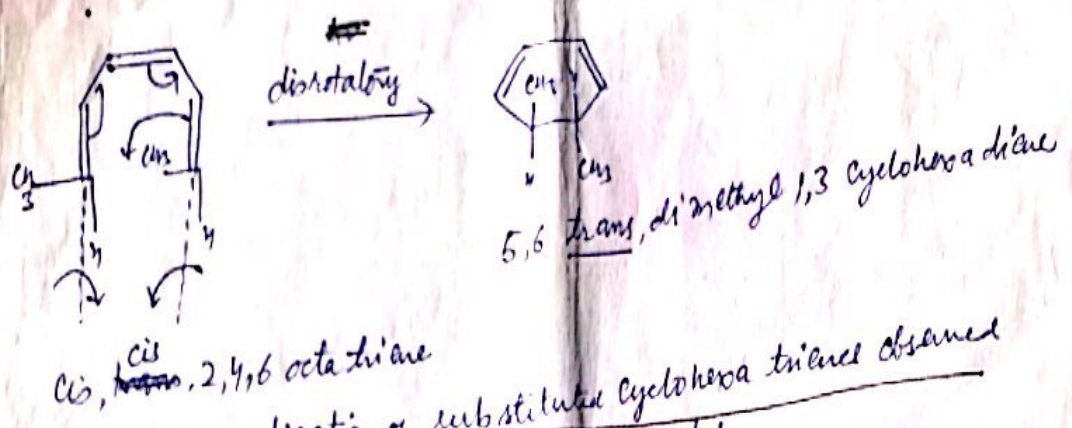 disrotatory
CH3
CH3
H
H
CH3
H
H
CH3
5,6 trans, dimethyl 1,3 cyclohexadiene
cis, cis, 2,4,6 octatriene
substituted cyclohexa trienes observed